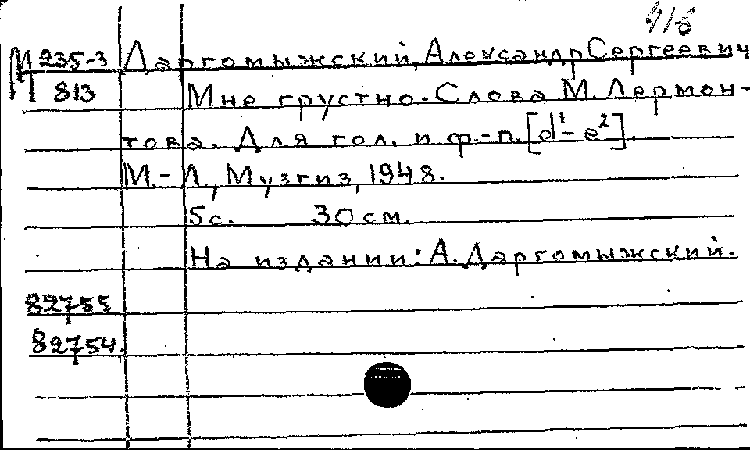 М 235-3 Даргомыжский, Александр Сергеевич
813 Мне грустно. Слова М. Лермон-
това. Для гол. и ф.-п. [d¹-e²].
М.-Л., Музгиз, 1948.
5с. 30см.
На издании: А. Даргомыжский.
82755
82754.